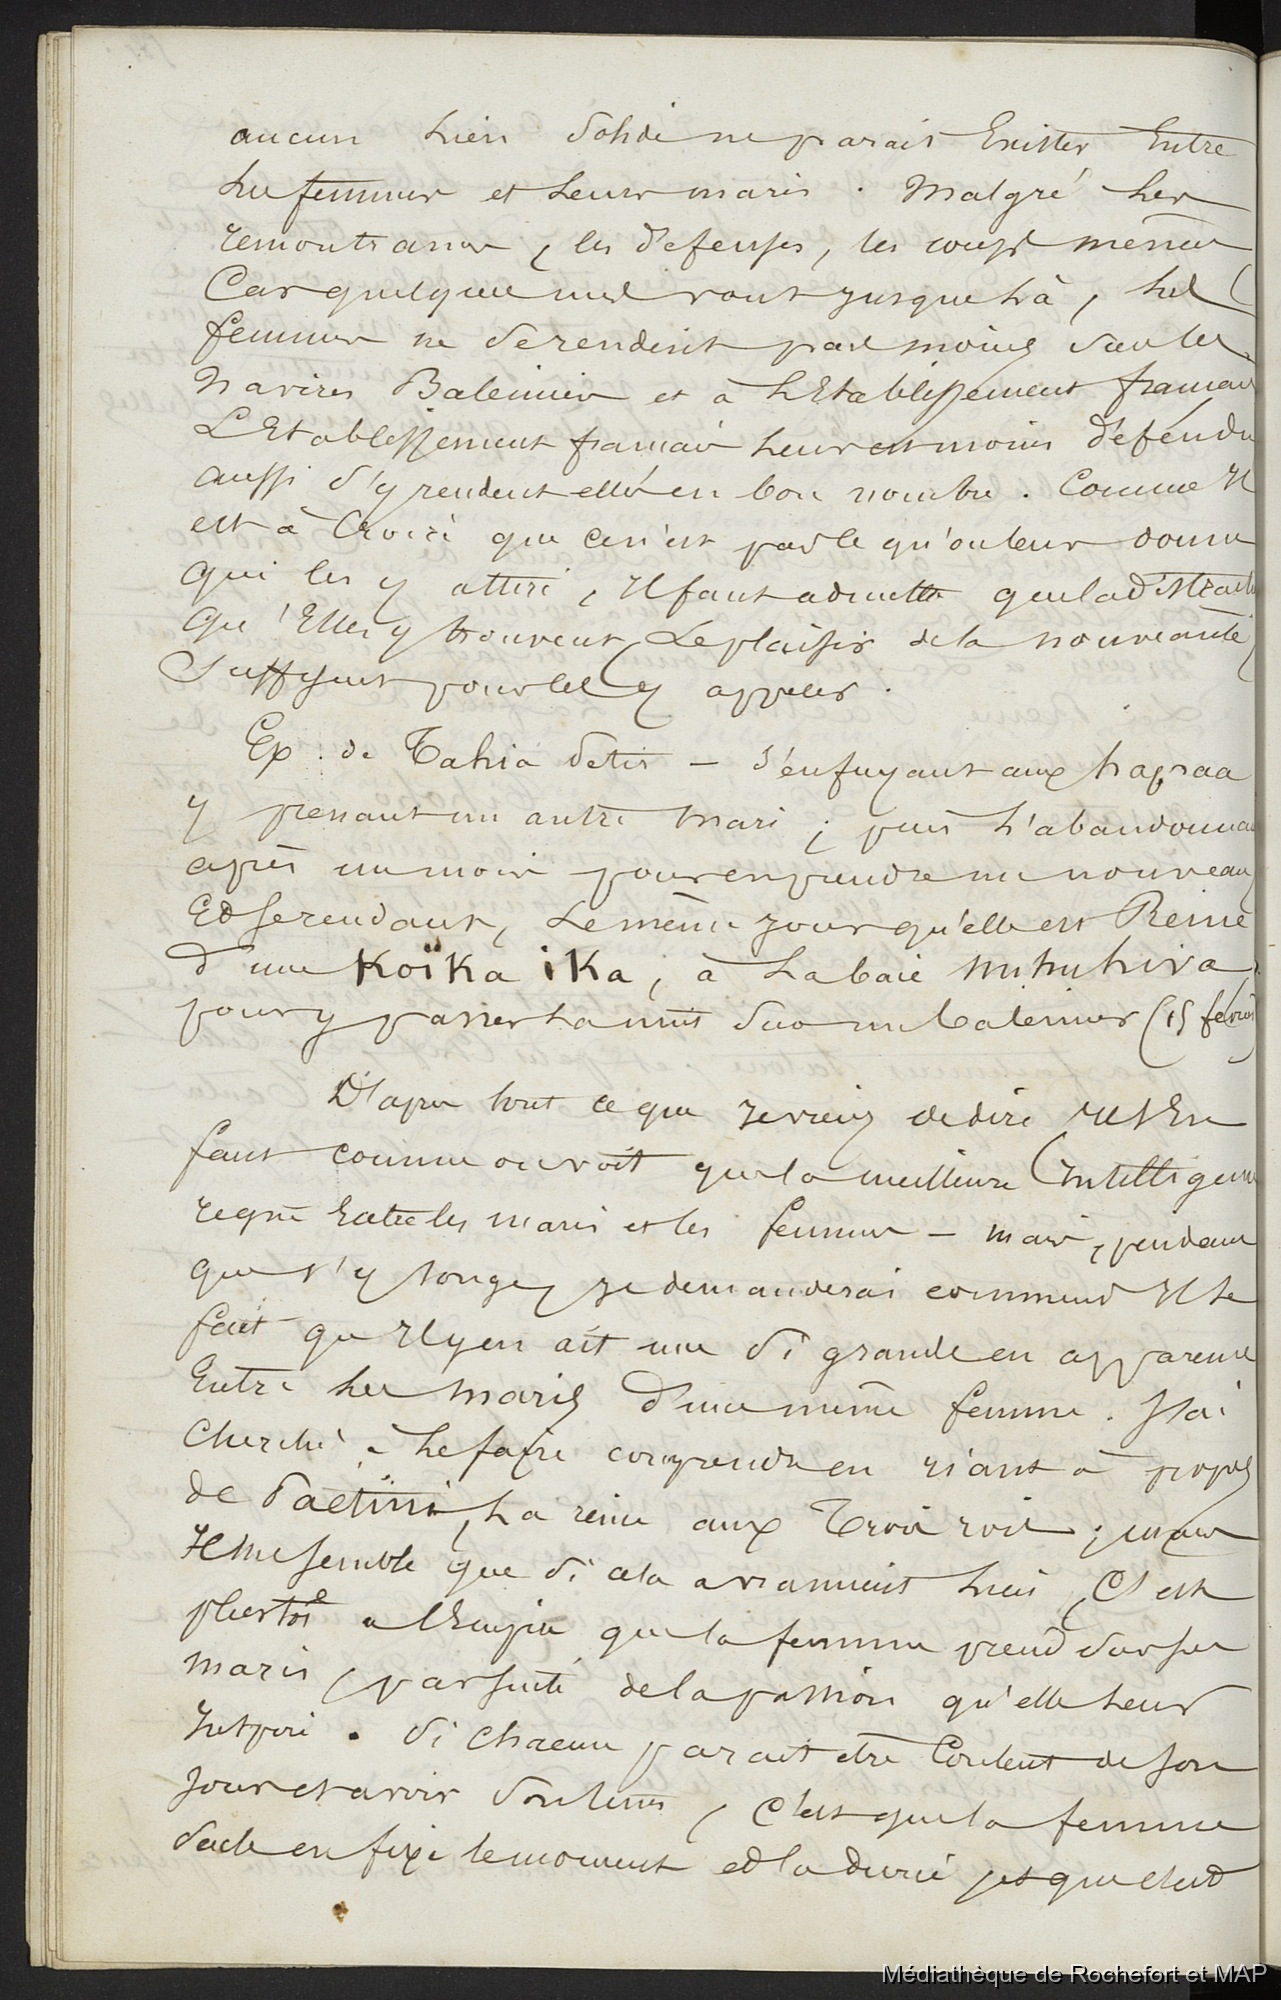 aucun lien solide ne parait Exister Entre
les femmes et leurs maris. Malgré les
remontrances, les defenses, les coups mêmes
Car quelques uns vont jusque là, les
femmes ne se rendent pas moins sur les
Navires Baleiniers et à L'Etablissement français
L'Etablissement français leur est moins défendu
aussi s'y rendent elles en bon nombre. Comme Il
est à Croire que ce n'est pas le qu'on leur donne
qui les y attire, Il faut admettre que la distraction
qu'Elles y trouvent, Le plaisir de la nouveauté
Suffisent pour les y appeler.
Ex. de Tahia s'enfuyant aux hapaa
y prenant un autre mari ; puis l'abandonnant
après un mois pour en prendre un nouveau
Et se rendant, Le même jour qu'elle est Reine
d'une Koïka ika, à La baie
pour y passer la nuit sur un baleinier (15
D'après tout ce que je viens de dire Il s'En
faut comme on voit que la meilleure Intelligence
regne Entre les maris et les femmes – mais, pendant
que j'y songe, je demanderai comment Il se
fait qu'Il y en ait une si grande en apparence
Entre les Maris d'une même femme. J'ai
Cherché à le faire comprendre en riant à propos
de Paetini, La reine aux Trois rois ; mais
Il me semble que si cela a vraiment lieu, C'est
plustôt a l'Empire que la femme prend sur ses
maris, par suite de la passion qu'elle leur
Inspire. Si Chacun parait etre Content de son
jour et avoir son tems, C'est que la femme
seule en fixe le moment et la durée, et que c'est
Médiathèque de Rochefort et MAP